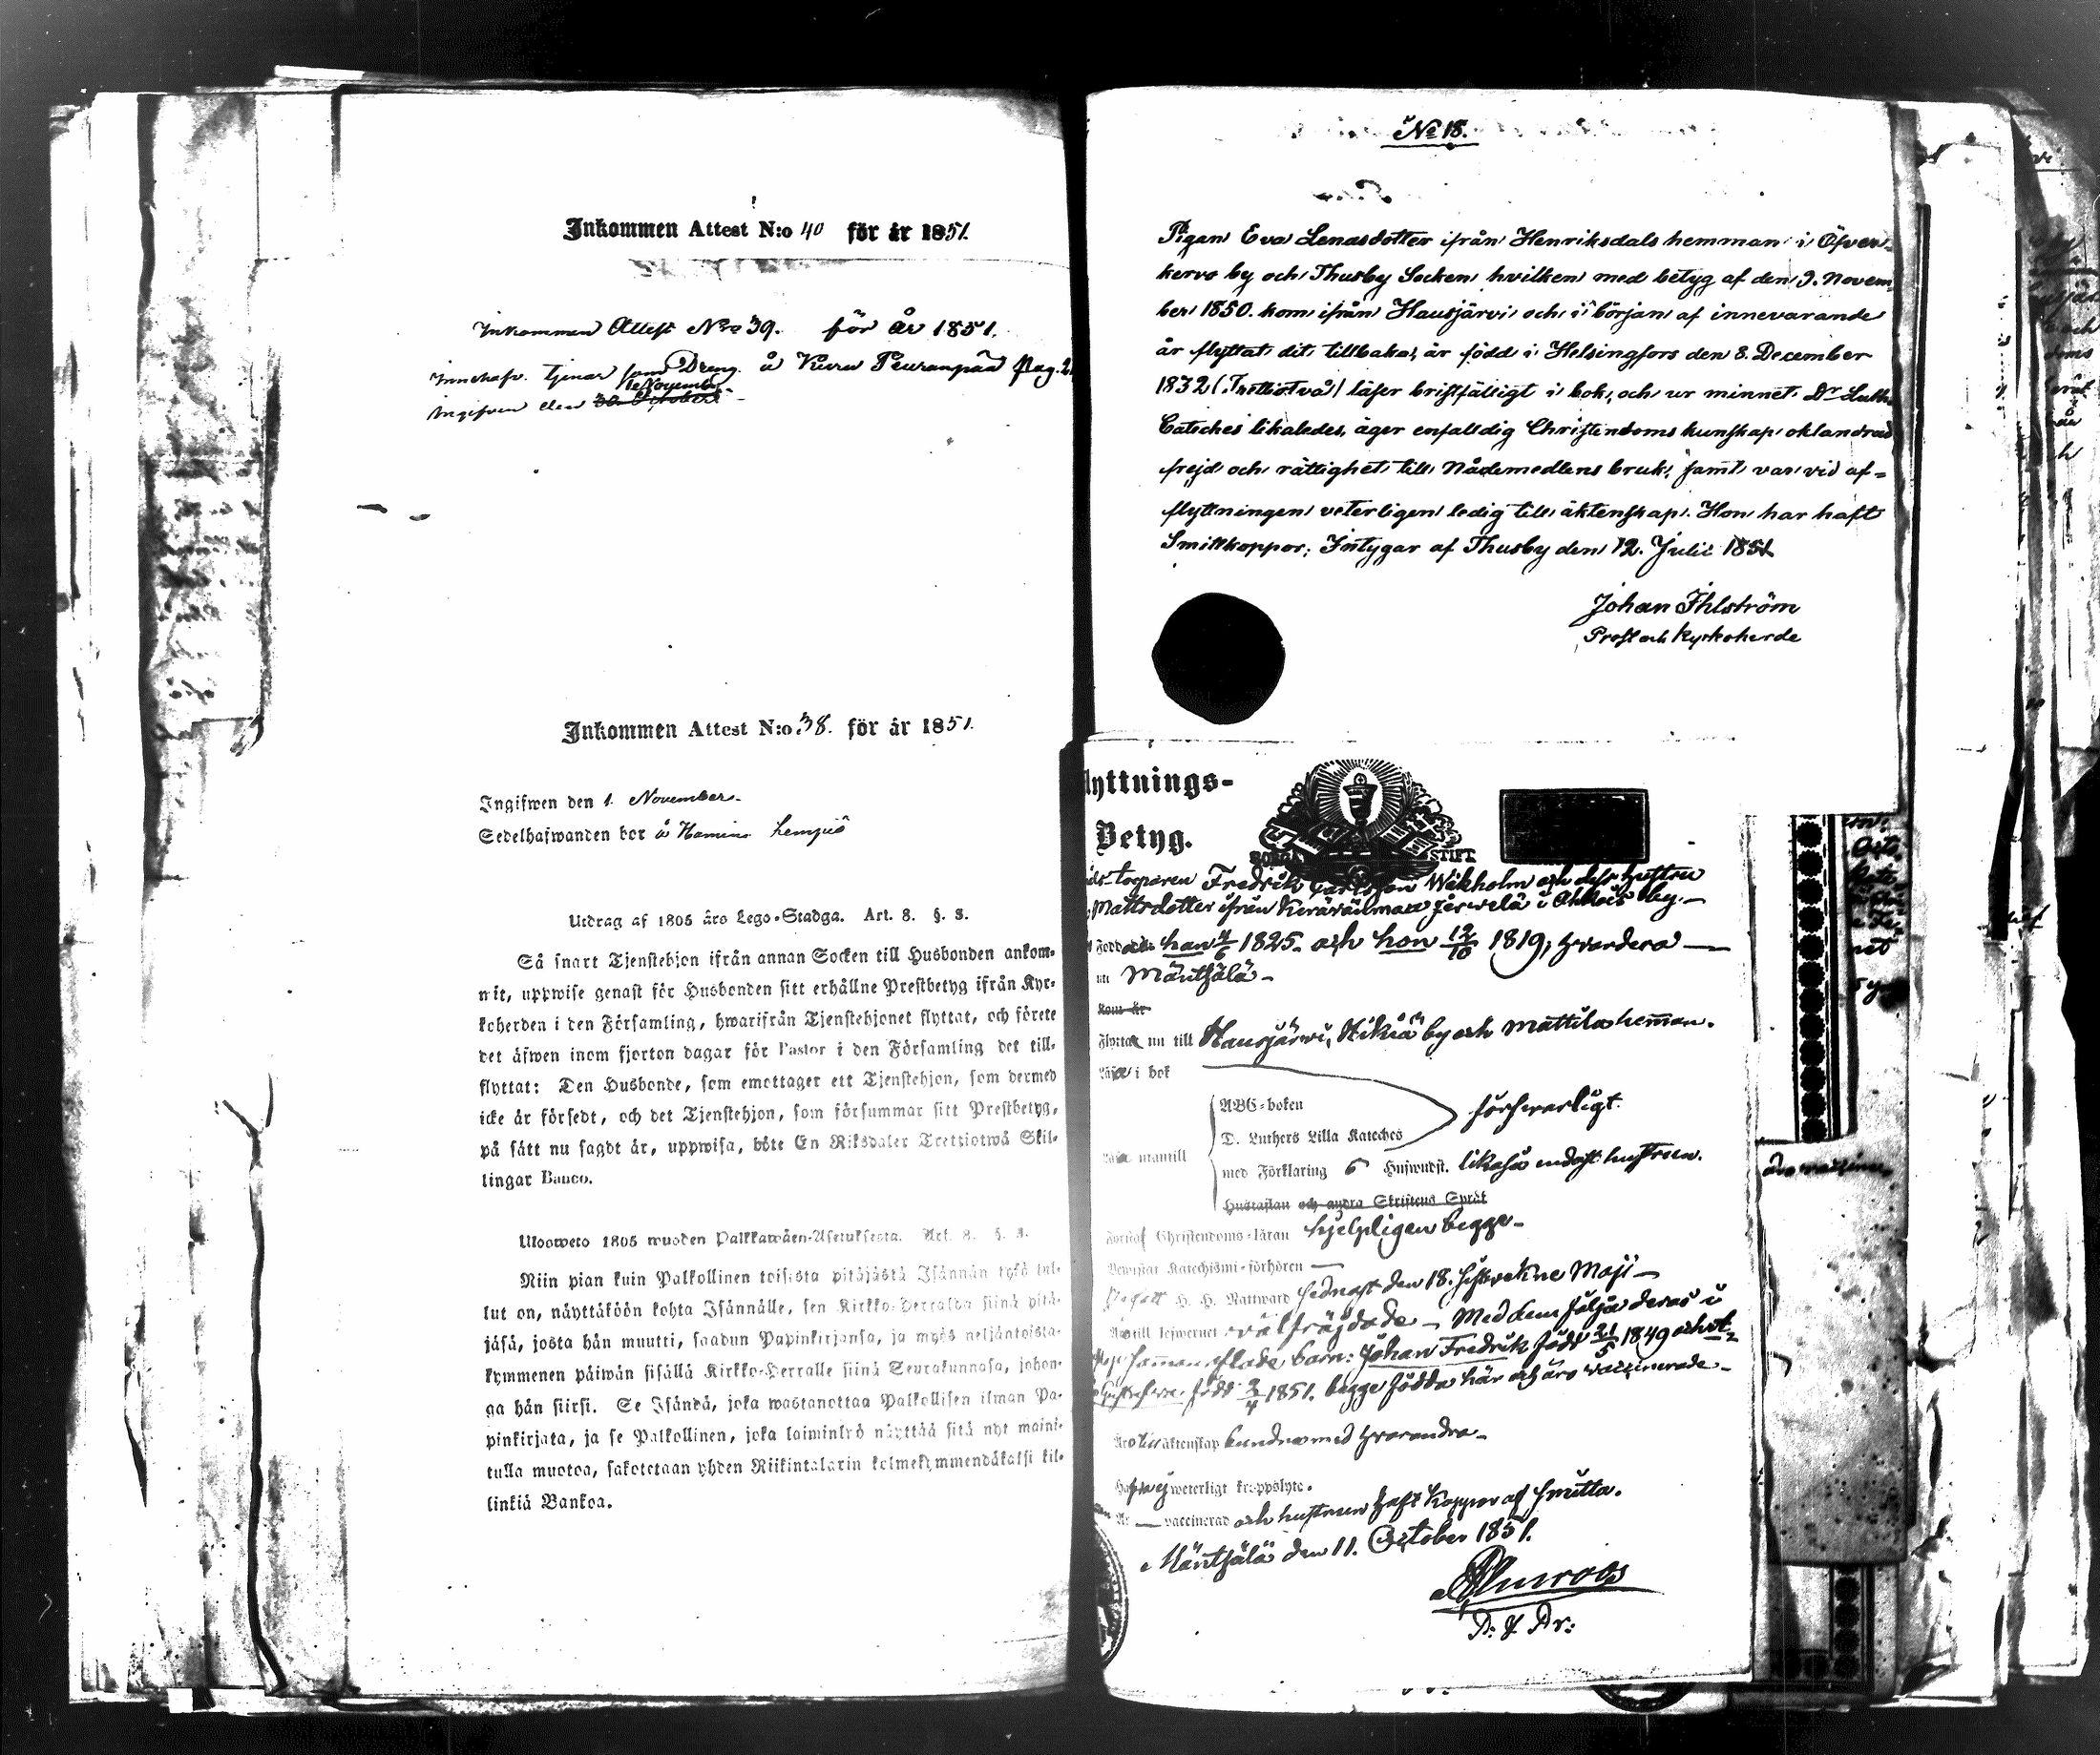 Inkommen Attest N:o 40 för år 1851.
Inkommen Attest No 39. för år 1851.
Innehafv. tjenar som Dreng å Kuru Peuranpää Pag. 2
Ingifven den 30. October
1 Novemb.
Inkommen Attest N:o 38. för år 1851.
Ingifwen den 1. November.
Sedelhafwanden bor å Hamina
Utdrag af 1805 års Lego-Stadga. Art. 8. §. 3.
Så snart Tjenstehjon ifrån annan Socken till Husbonden ankom-
mit, uppwise genast för Husbonden sitt erhållne Prestbetyg ifrån Kyr-
koherden i den Församling, hwarifrån Tjenstehjonet flyttat, och förete
det äfwen inom fjorton dagar för Pastor i den Församling det till-
flyttat: Den Husbonde, som emottager ett Tjenstehjon, som dermed
icke är försedt, och det Tjenstehjon, som försummar sitt Prestbetyg,
på sätt nu sagdt är, uppwisa, böte En Riksdaler Trettiotwå Skil-
lingar Banco.
Ulosweto 1805 wuoden Palkkawäen-Asetuksesta. Art. 8. §. 3.
Niin pian kuin Palkollinen toisesta pitäjästä Isännän tykö tul-
lut on, näyttäköön kohta Isännälle, sen Kirkko-Herralda siinä pitä-
jäsä, josta hän muutti, saadun Papinkirjansa, ja myös neljäntoista-
kymmenen päiwän sisällä Kirkko-Herralle siinä Seurakunnasa, johon-
ga hän siirsi. Se Isändä, joka wastanottaa Palkollisen ilman Pa-
pinkirjata, ja se Palkollinen, joka laiminlyö näyttää sitä nyt maini-
tulla muotoa, sakotetaan yhden Riikintalarin kolmekymmendäkaksi kil-
linkiä Bankoa.
No 18.
Pigan Eva Lenasdotter ifrån Henriksdals hemman i Öfver-
kervo by och Thusby Socken hvilken med betyg af den 9. Novem-
ber 1850. kom ifrån Hausjärvi och i början af innevarande
år flyttat dit tillbaka, är född i Helsingfors den 8. December
1832 (Trettiotvå) läser bristfälligt i bok, och ur minnet Dr Luth.
Catiches likaledes, äger enfalldig Christendoms kunskap oklandrad
frejd och rättighet till Nådemedlens bruk, samt var vid af-
flyttningen veterligen ledig till äktenskap. Hon har haft
Smittkoppor; Intygar af Thusby den 12. Julii 1851
Johan Ihlström
Prost och Kyrkoherde
lyttnings-
Betyg.
BORGÅ STIFT
torparen Fredrik Carlsson Wekholm och dess hustru
Mattsdotter ifrån i by.
Född han 4/6 1825. och hon 12/10 1819, hvardera
Mäntsälä
Kom år
Flyttar nu till Hausjärwi, Hikiä by och Mattila heman.
Läsa i bok
ABC-boken
D. Luthers Lilla Kateches försvarligt.
Läsa utantill
med Förklaring 6 Hufwudst. likaså endast hustrun.
Hustaflan och andra Skriftens Språk
Förstå Christendoms-läran hjelpligen begge
Bewistar Katechismi-förhören
H. H. Nattward sednast den 18. sistvekne Maji
till lefwernet välfräjdade Med dem följa deras i
sammanaflade barn: Johan Fredrik född 21/5 1849 och
född 2/4 1851. begge födda här och äro vaccinerade
äktenskap bundna med hvarandra
weterligt kroppslyte.
vaccinerad och hustrun haft Koppor af smitta.
Mäntsälä den 11. October 1851.